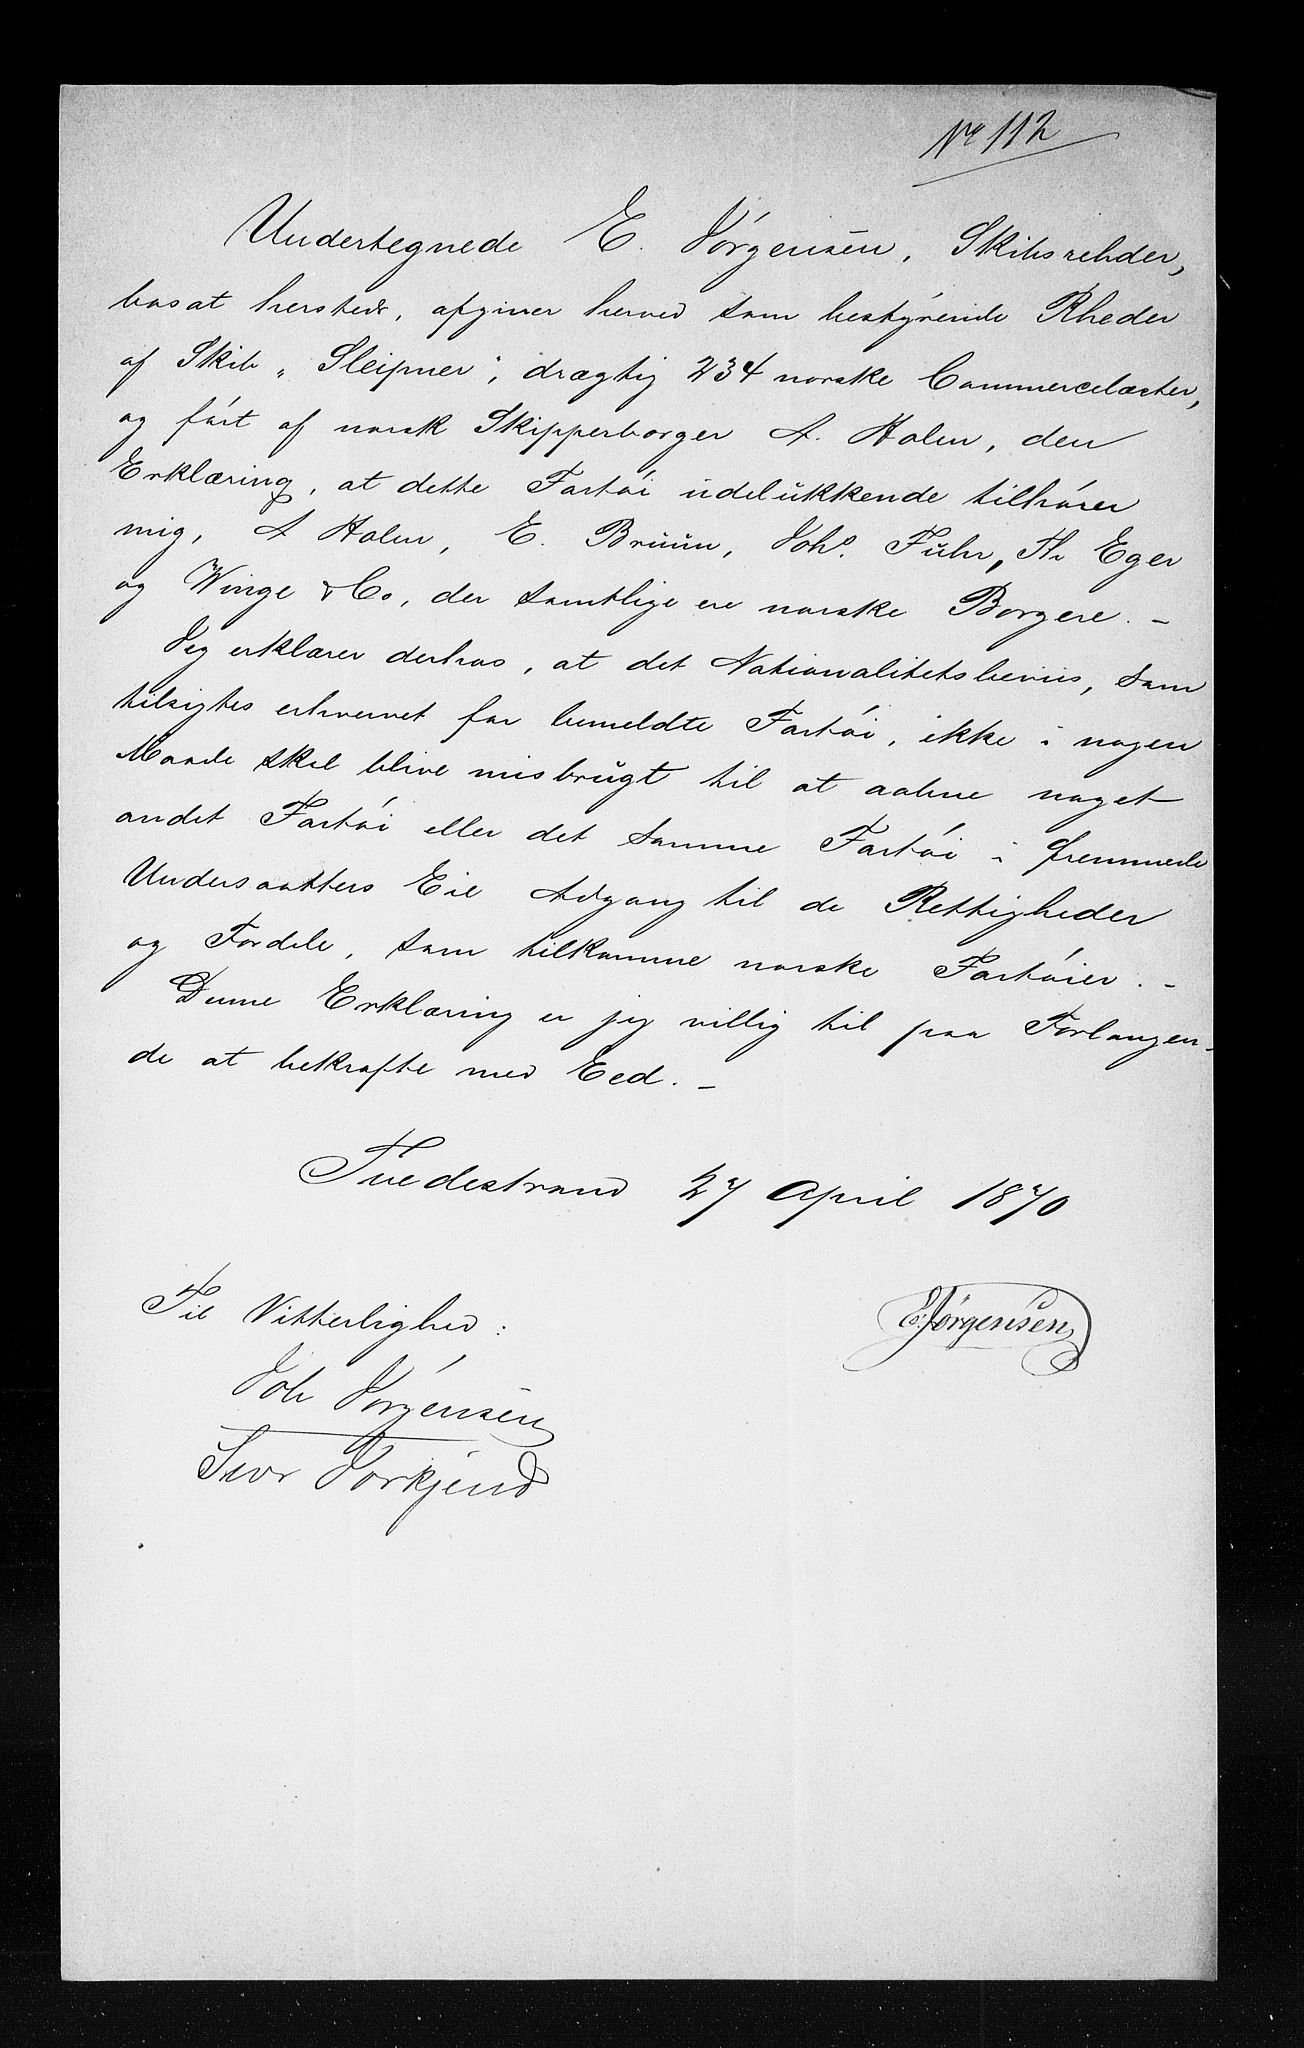 No 112
Undertegnede E. Jörgensen, Skibsrehder,
bosat hersteds, afgiver herved som bestyrende Rheder
af Skib „Sleipner", drægtig 234 norske Commercelæster,
og fört af norsk Skipperborger A. Holm, den
Erklæring, at dette Fartöi udelukkende tilhörer
mig, A Holm, E. Bruun, Johs. Fuhr, Th Eger
og Winge & Co, der samtlige ere norske Borgere. –
Jeg erklærer derhos, at det Nationalitetsbeviis, som
tilsigtes erhvervet for bemeldte Fartöi, ikke i nogen
Maade skal blive misbrugt til at aabne noget
andet Fartöi eller det samme Fartöi i fremmede
Undersaatters Eie Adgang til de Rettigheder
og Fordele, som tilkomme norske Fartöier. –
Denne Erklæring er jeg villig til paa Forlangen-
de at bekræfte med Eed. –
Tvedestrand 27 April 1870
E. Jörgensen
Til Vitterlighed:
Joh Jörgensen